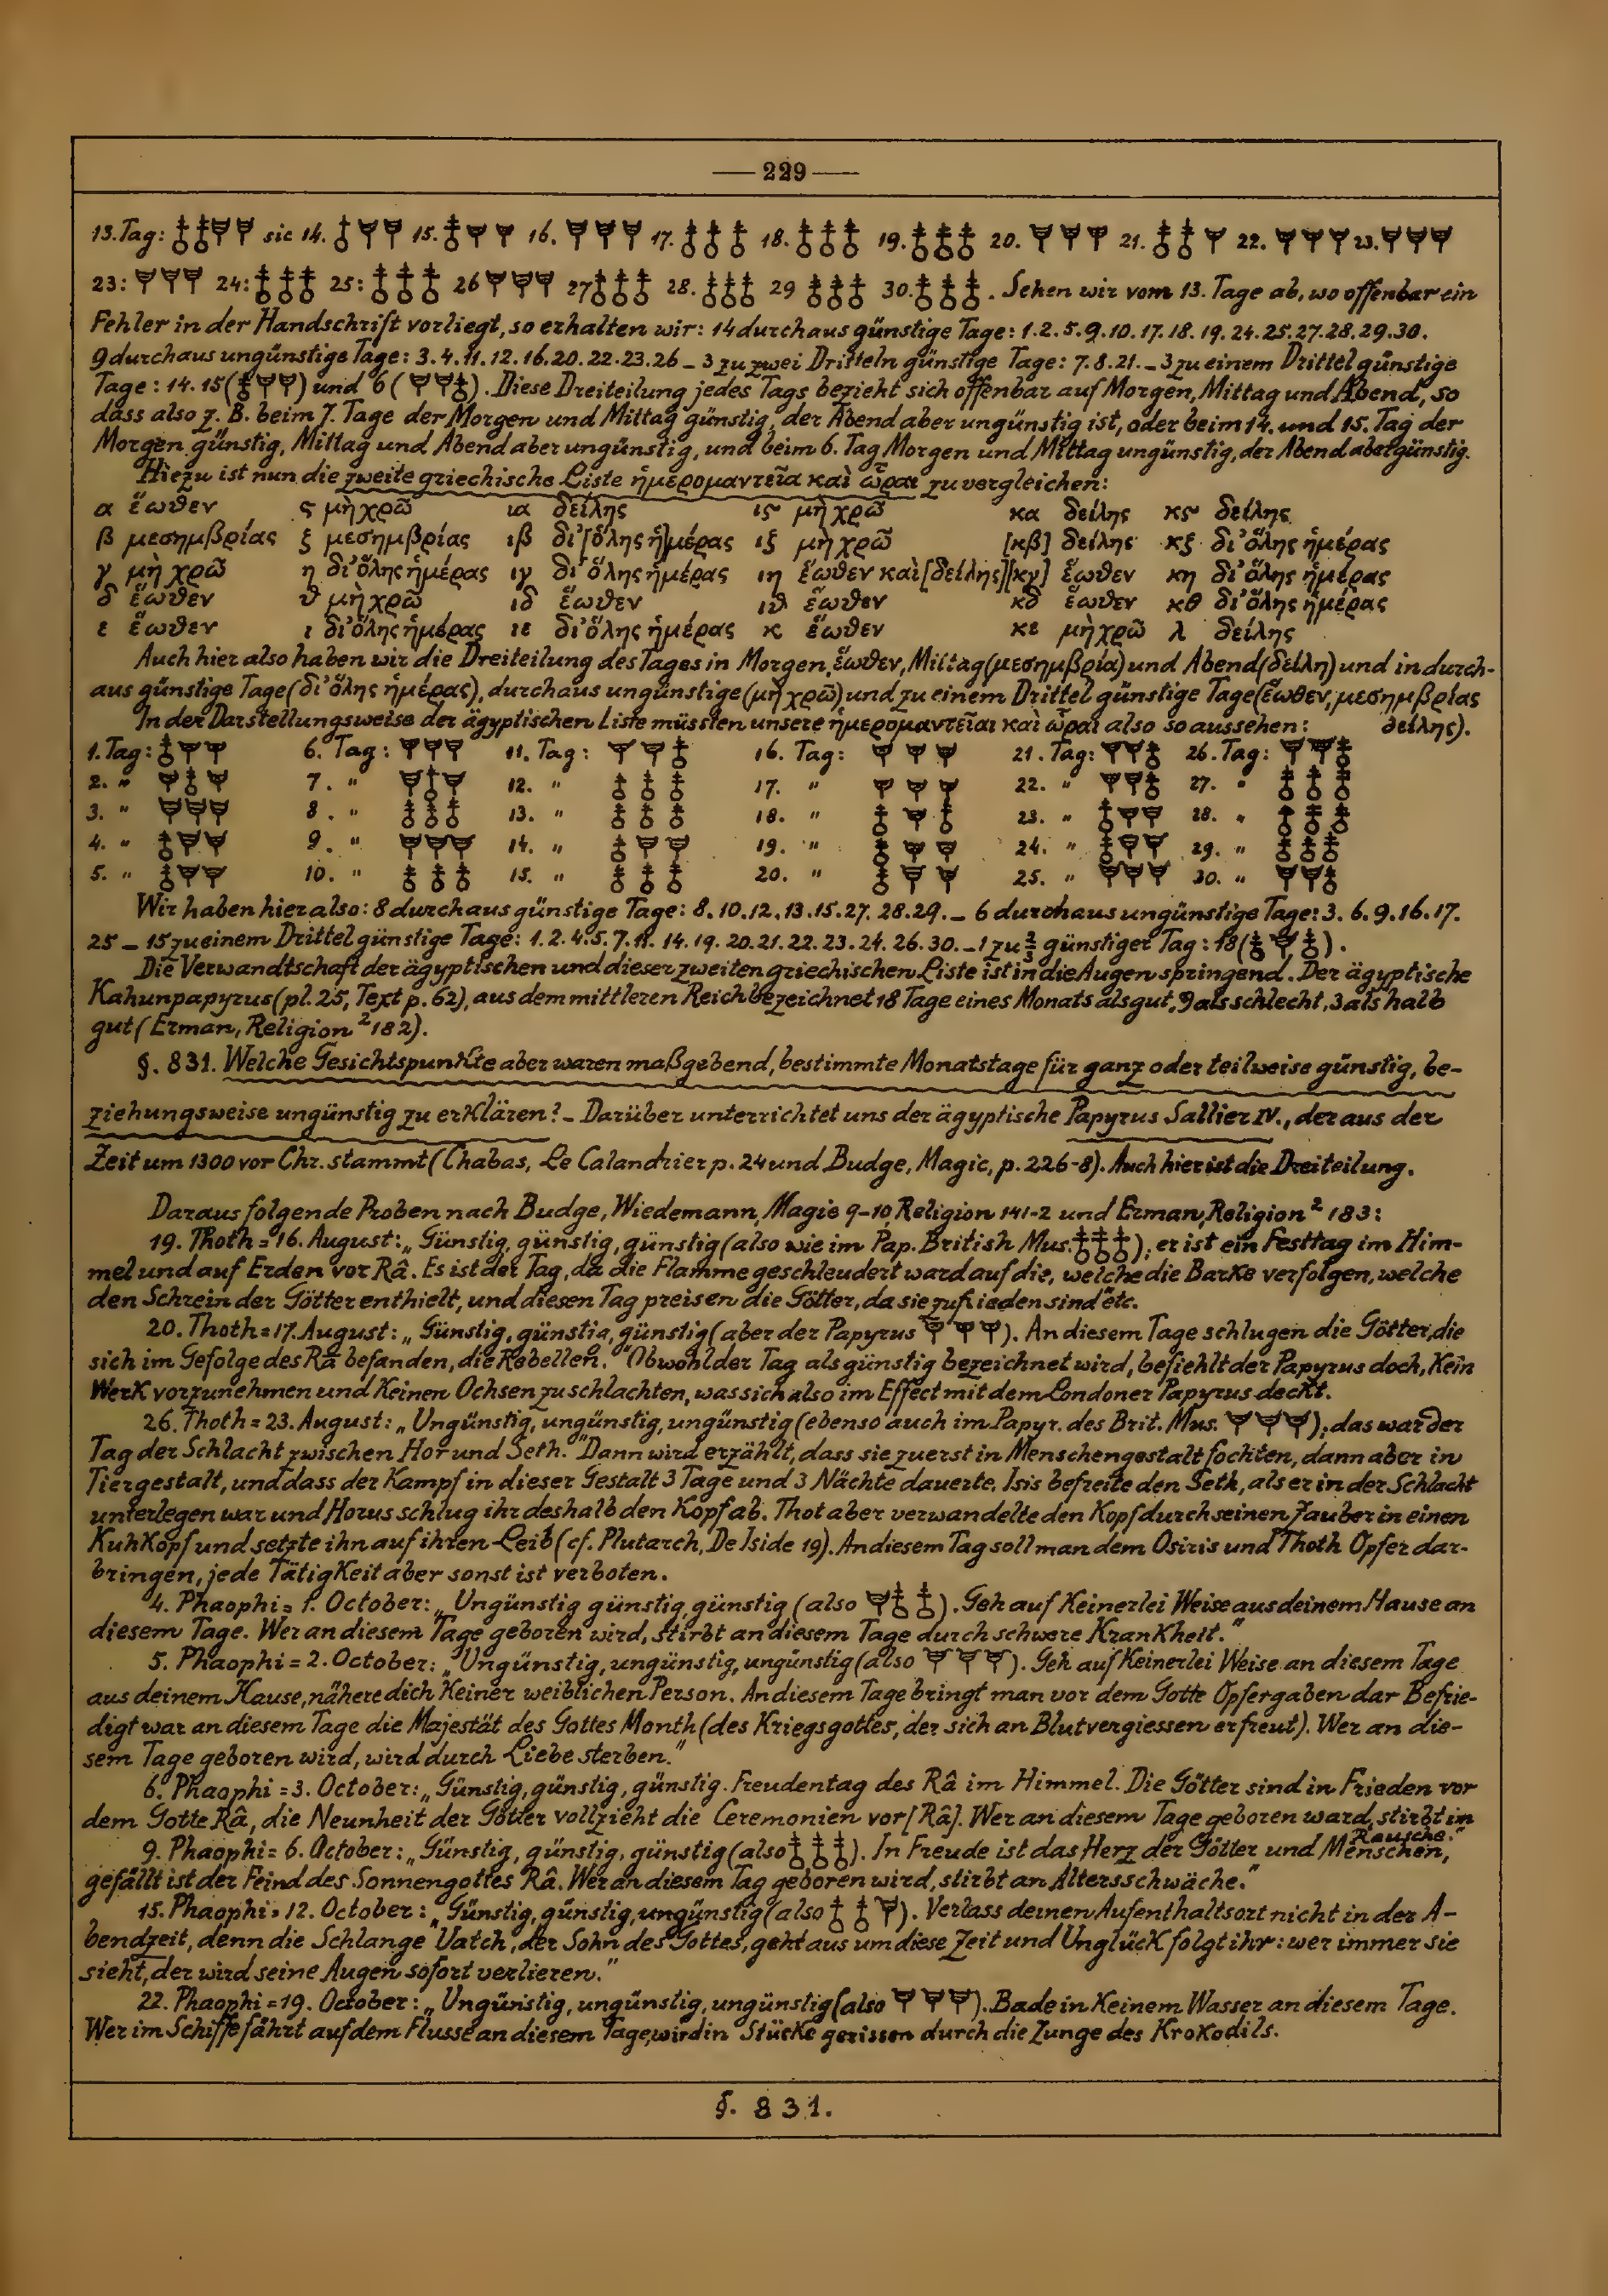 — 229 —
13. Tag: 𓄤𓄤 sic 14. 15. 16. 17. 18. 19. 20. 21. 22. 23.
23: 24: 25: 26 27 28. 29 30. . Sehen wir vom 13. Tage ab, wo offenbar ein
Fehler in der Handschrift vorliegt, so erhalten wir: 14 durchaus günstige Tage: 1. 2. 5. 9. 10. 17. 18. 19. 24. 25. 27. 28. 29. 30.
9 durchaus ungünstige Tage: 3. 4. 11. 12. 16. 20. 22. 23. 26 _ 3 zu zwei Dritteln günstige Tage: 7. 8. 21. _ 3 zu einem Drittel günstige
Tage: 14. 15 ( ) und 6 ( ). Diese Dreiteilung jedes Tags bezieht sich offenbar auf Morgen, Mittag und Abend, so
dass also z. B. beim 7. Tage der Morgen und Mittag günstig, der Abend aber ungünstig ist, oder beim 14. und 15. Tag der
Morgen günstig, Mittag und Abend aber ungünstig, und beim 6. Tag Morgen und Mittag ungünstig, der Abend aber günstig.
Hiezu ist nun die zweite griechische Liste ἡμερομαντεῖα καὶ ὧραι zu vergleichen:
α ἕωθεν ς μὴ χρῶ ια δείλης ις μὴ χρῶ κα δείλης κς δείλης
β μεσημβρίας ξ μεσημβρίας ιβ δι' [ὅλης ἡ]μέρας ιξ μὴ χρῶ [κβ] δείλης κξ δι' ὅλης ἡμέρας
γ μὴ χρῶ η δι' ὅλης ἡμέρας ιγ δι' ὅλης ἡμέρας ιη ἕωθεν καὶ [δείλης] [κγ] ἕωθεν κη δι' ὅλης ἡμέρας
δ ἕωθεν ϑ μὴ χρῶ ιδ ἕωθεν ιϑ ἕωθεν κδ ἕωθεν κθ δι' ὅλης ἡμέρας
ε ἕωθεν ι δι' ὅλης ἡμέρας ιε δι' ὅλης ἡμέρας κ ἕωθεν κε μὴ χρῶ λ δείλης
Auch hier also haben wir die Dreiteilung des Tages in Morgen, ἕωθεν, Mittag (μεσημβρία) und Abend (δείλη) und in durch-
aus günstige Tage (δι' ὅλης ἡμέρας), durchaus ungünstige (μὴ χρῶ) und zu einem Drittel günstige Tage (ἕωθεν, μεσημβρίας
δείλης).
In der Darstellungsweise der ägyptischen Liste müssten unsere ἡμερομαντεῖαι καὶ ὧραι also so aussehen:
1. Tag: 6. Tag: 11. Tag: 16. Tag: 21. Tag: 26. Tag:
2. " 7. " 12. " 17. " 22. " 27. "
3. " 8. " 13. " 18. " 23. " 28. "
4. " 9. " 14. " 19. " 24. " 29. "
5. " 10. " 15. " 20. " 25. " 30. "
Wir haben hier also: 8 durchaus günstige Tage: 8. 10. 12. 13. 15. 27. 28. 29. _ 6 durchaus ungünstige Tage: 3. 6. 9. 16. 17.
25 _ 15 zu einem Drittel günstige Tage: 1. 2. 4. 5. 7. 11. 14. 19. 20. 21. 22. 23. 24. 26. 30. _ 1 zu ⅔ günstiger Tag: 18 ( ).
Die Verwandtschaft der ägyptischen und dieser zweiten griechischen Liste ist in die Augen springend. Der ägyptische
Kahunpapyrus (pl. 25, Text p. 62), aus dem mittleren Reich bezeichnet 18 Tage eines Monats als gut, 9 als schlecht, 3 als halb
gut (Erman, Religion ² 182).
§. 831. Welche Gesichtspunkte aber waren maßgebend, bestimmte Monatstage für ganz oder teilweise günstig, be-
ziehungsweise ungünstig zu erklären? _ Darüber unterrichtet uns der ägyptische Papyrus Sallier IV., der aus der
Zeit um 1300 vor Chr. stammt (Chabas, Le Calandrier p. 24 und Budge, Magic, p. 226-8). Auch hier ist die Dreiteilung.
Daraus folgende Proben nach Budge, Wiedemann, Magie 9-10, Religion 141-2 und Erman, Religion ² 183:
19. Thoth = 16. August: „Günstig, günstig, günstig (also wie im Pap. British Mus. ); er ist ein Festtag im Him-
mel und auf Erden vor Râ. Es ist der Tag, da die Flamme geschleudert ward auf die, welche die Barke verfolgen, welche
den Schrein der Götter enthielt, und diesen Tag preisen die Götter, da sie zufrieden sind" etc.
20. Thoth = 17. August: „Günstig, günstig, günstig (aber der Papyrus ). An diesem Tage schlugen die Götter, die
sich im Gefolge des Râ befanden, die Rebellen." Obwohl der Tag als günstig bezeichnet wird, befiehlt der Papyrus doch, kein
Werk vorzunehmen und keinen Ochsen zu schlachten, was sich also im Effect mit dem Londoner Papyrus deckt.
26. Thoth = 23. August: „Ungünstig, ungünstig, ungünstig (ebenso auch im Papyr. des Brit. Mus. ); das war der
Tag der Schlacht zwischen Hor und Seth." Dann wird erzählt, dass sie zuerst in Menschengestalt fochten, dann aber in
Tiergestalt, und dass der Kampf in dieser Gestalt 3 Tage und 3 Nächte dauerte. Isis befreite den Seth, als er in der Schlacht
unterlegen war und Horus schlug ihr deshalb den Kopf ab. Thot aber verwandelte den Kopf durch seinen Zauber in einen
Kuhkopf und setzte ihn auf ihren Leib (cf. Plutarch, De Iside 19). An diesem Tag soll man dem Osiris und Thoth Opfer dar-
bringen, jede Tätigkeit aber sonst ist verboten.
4. Phaophi = 1. October: „Ungünstig günstig, günstig (also ). Geh auf keinerlei Weise aus deinem Hause an
diesem Tage. Wer an diesem Tage geboren wird, stirbt an diesem Tage durch schwere Krankheit."
5. Phaophi = 2. October: „Ungünstig, ungünstig, ungünstig (also ). Geh auf keinerlei Weise an diesem Tage
aus deinem Hause, nähere dich keiner weiblichen Person. An diesem Tage bringt man vor dem Gotte Opfergaben dar Befrie-
digt war an diesem Tage die Majestät des Gottes Month (des Kriegsgottes, der sich an Blutvergiessen erfreut). Wer an die-
sem Tage geboren wird, wird durch Liebe sterben."
6. Phaophi = 3. October: „Günstig, günstig, günstig. Freudentag des Râ im Himmel. Die Götter sind in Frieden vor
dem Gotte Râ, die Neunheit der Götter vollzieht die Ceremonien vor [Râ]. Wer an diesem Tage geboren ward, stirbt im
Rausche."
9. Phaophi = 6. October: „Günstig, günstig, günstig (also ). In Freude ist das Herz der Götter und Menschen,
gefällt ist der Feind des Sonnengottes Râ. Wer an diesem Tag geboren wird, stirbt an Altersschwäche."
15. Phaophi = 12. October: „Günstig, günstig, ungünstig (also ). Verlass deinen Aufenthaltsort nicht in der A-
bendzeit, denn die Schlange Uatch, der Sohn des Gottes, geht aus um diese Zeit und Unglück folgt ihr: wer immer sie
sieht, der wird seine Augen sofort verlieren."
22. Phaophi = 19. October: „Ungünstig, ungünstig, ungünstig (also ). Bade in keinem Wasser an diesem Tage.
Wer im Schiffe fährt auf dem Flusse an diesem Tage, wird in Stücke gerissen durch die Zunge des Krokodils.
§. 831.